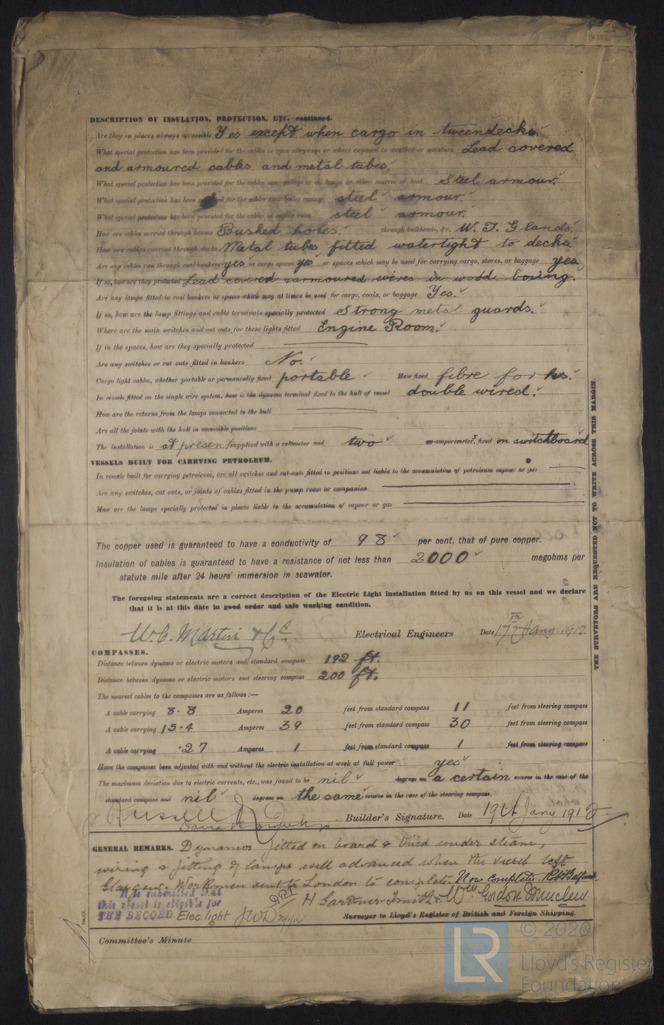 DESCRIPTION OF INSULATION, PROTECTION, ETC. continued.
Are they in places always accessible Yes except when cargo in tweendecks.
What special protection has been provided for the cables in open alleyways or where exposed to weather or moisture Lead covered
and armoured cables and metal tubes.
What special protection has been provided for the cables near galleys or oil lamps or other sources of heat Steel armour.
What special protection has been provided for the cables near boiler casings steel armour.
What special protection has been provided for the cables in engine room steel armour.
How are cables carried through beams Bushed holes. through bulkheads, &c. W. T. Glands.
How are cables carried through decks Metal tubes fitted watertight to decks
Are any cables run through coal bunkers yes or cargo spaces yes or spaces which may be used for carrying cargo, stores, or baggage yes
If so, how are they protected Lead covered armoured wires in wood boxing.
Are any lamps fitted in coal bunkers or spaces which may at times be used for cargo, coals, or baggage Yes.
If so, how are the lamp fittings and cable terminals specially protected Strong metal guards.
Where are the main switches and cut outs for these lights fitted Engine Room.
If in the spaces, how are they specially protected
Are any switches or cut outs fitted in bunkers No.
Cargo light cables, whether portable or permanently fixed portable How fixed fibre for
In vessels fitted on the single wire system, how is the dynamo terminal fixed to the hull of vessel double wired.
How are the returns from the lamps connected to the hull
Are all the joints with the hull in accessible positions
The installation is at present supplied with a voltmeter and two an amperemeter, fixed on switchboard
VESSELS BUILT FOR CARRYING PETROLEUM.
In vessels built for carrying petroleum, are all switches and cut-outs fitted in positions not liable to the accumulation of petroleum vapour or gas
Are any switches, cut outs, or joints of cables fitted in the pump room or companion
How are the lamps specially protected in places liable to the accumulation of vapour or gas
The copper used is guaranteed to have a conductivity of 98 per cent. that of pure copper.
Insulation of cables is guaranteed to have a resistance of not less than 2000 megohms per
statute mile after 24 hours' immersion in seawater.
The foregoing statements are a correct description of the Electric Light installation fitted by us on this vessel and we declare
that it is at this date in good order and safe working condition.
W. C. Martin & Co Electrical Engineers Date 17th Jany 1912
COMPASSES.
Distance between dynamo or electric motors and standard compass 192 ft.
Distance between dynamo or electric motors and steering compass 200 ft.
The nearest cables to the compasses are as follows:—
A cable carrying 8.8 Amperes 20 feet from standard compass 11 feet from steering compass
A cable carrying 15.4 Amperes 39 feet from standard compass 30 feet from steering compass
A cable carrying .27 Amperes 1 feet from standard compass 1 feet from steering compass
Have the compasses been adjusted with and without the electric installation at work at full power yes
The maximum deviation due to electric currents, etc., was found to be nil degrees on a certain course in the case of the
standard compass and nil degrees on the same course in the case of the steering compass.
Russell & Co Builder's Signature. Date 19th Jany 1912
GENERAL REMARKS. Dynamos fitted on board & tried under steam,
wiring & fitting of lamps well advanced when the vessel left
Glasgow. Workmen sent to London to complete. Now complete
It is submitted that
this vessel is eligible for
THE RECORD Elec light
H Gardner-Smith & Wm Gordon
Surveyor to Lloyd's Register of British and Foreign Shipping.
Committee's Minute
THE SURVEYORS ARE REQUESTED NOT TO WRITE ACROSS THIS MARGIN.
LR
© 2020
Lloyd's Register
Foundation